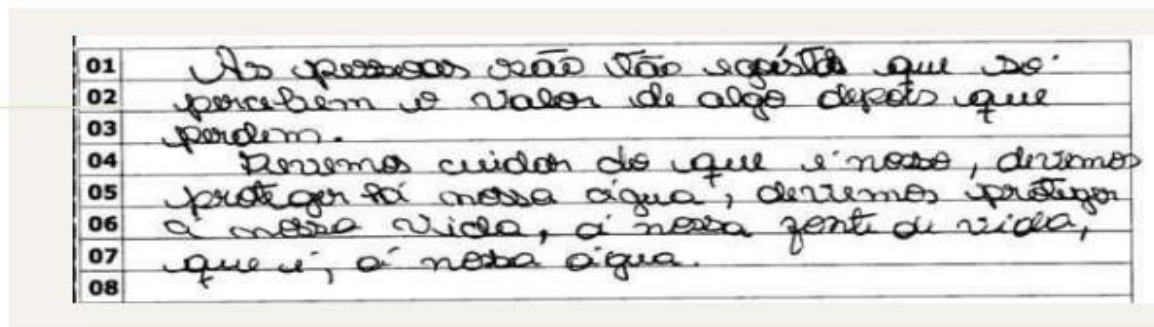 01 As pessoas são tão egoístas que só
02 percebem o valor de algo depois que
03 perdem.
04 Devemos cuidar do que é nosso, devemos
05 proteger há nossa água, devemos proteger
06 á nossa vida, á nossa fonte de vida,
07 que é, á nossa água.
08